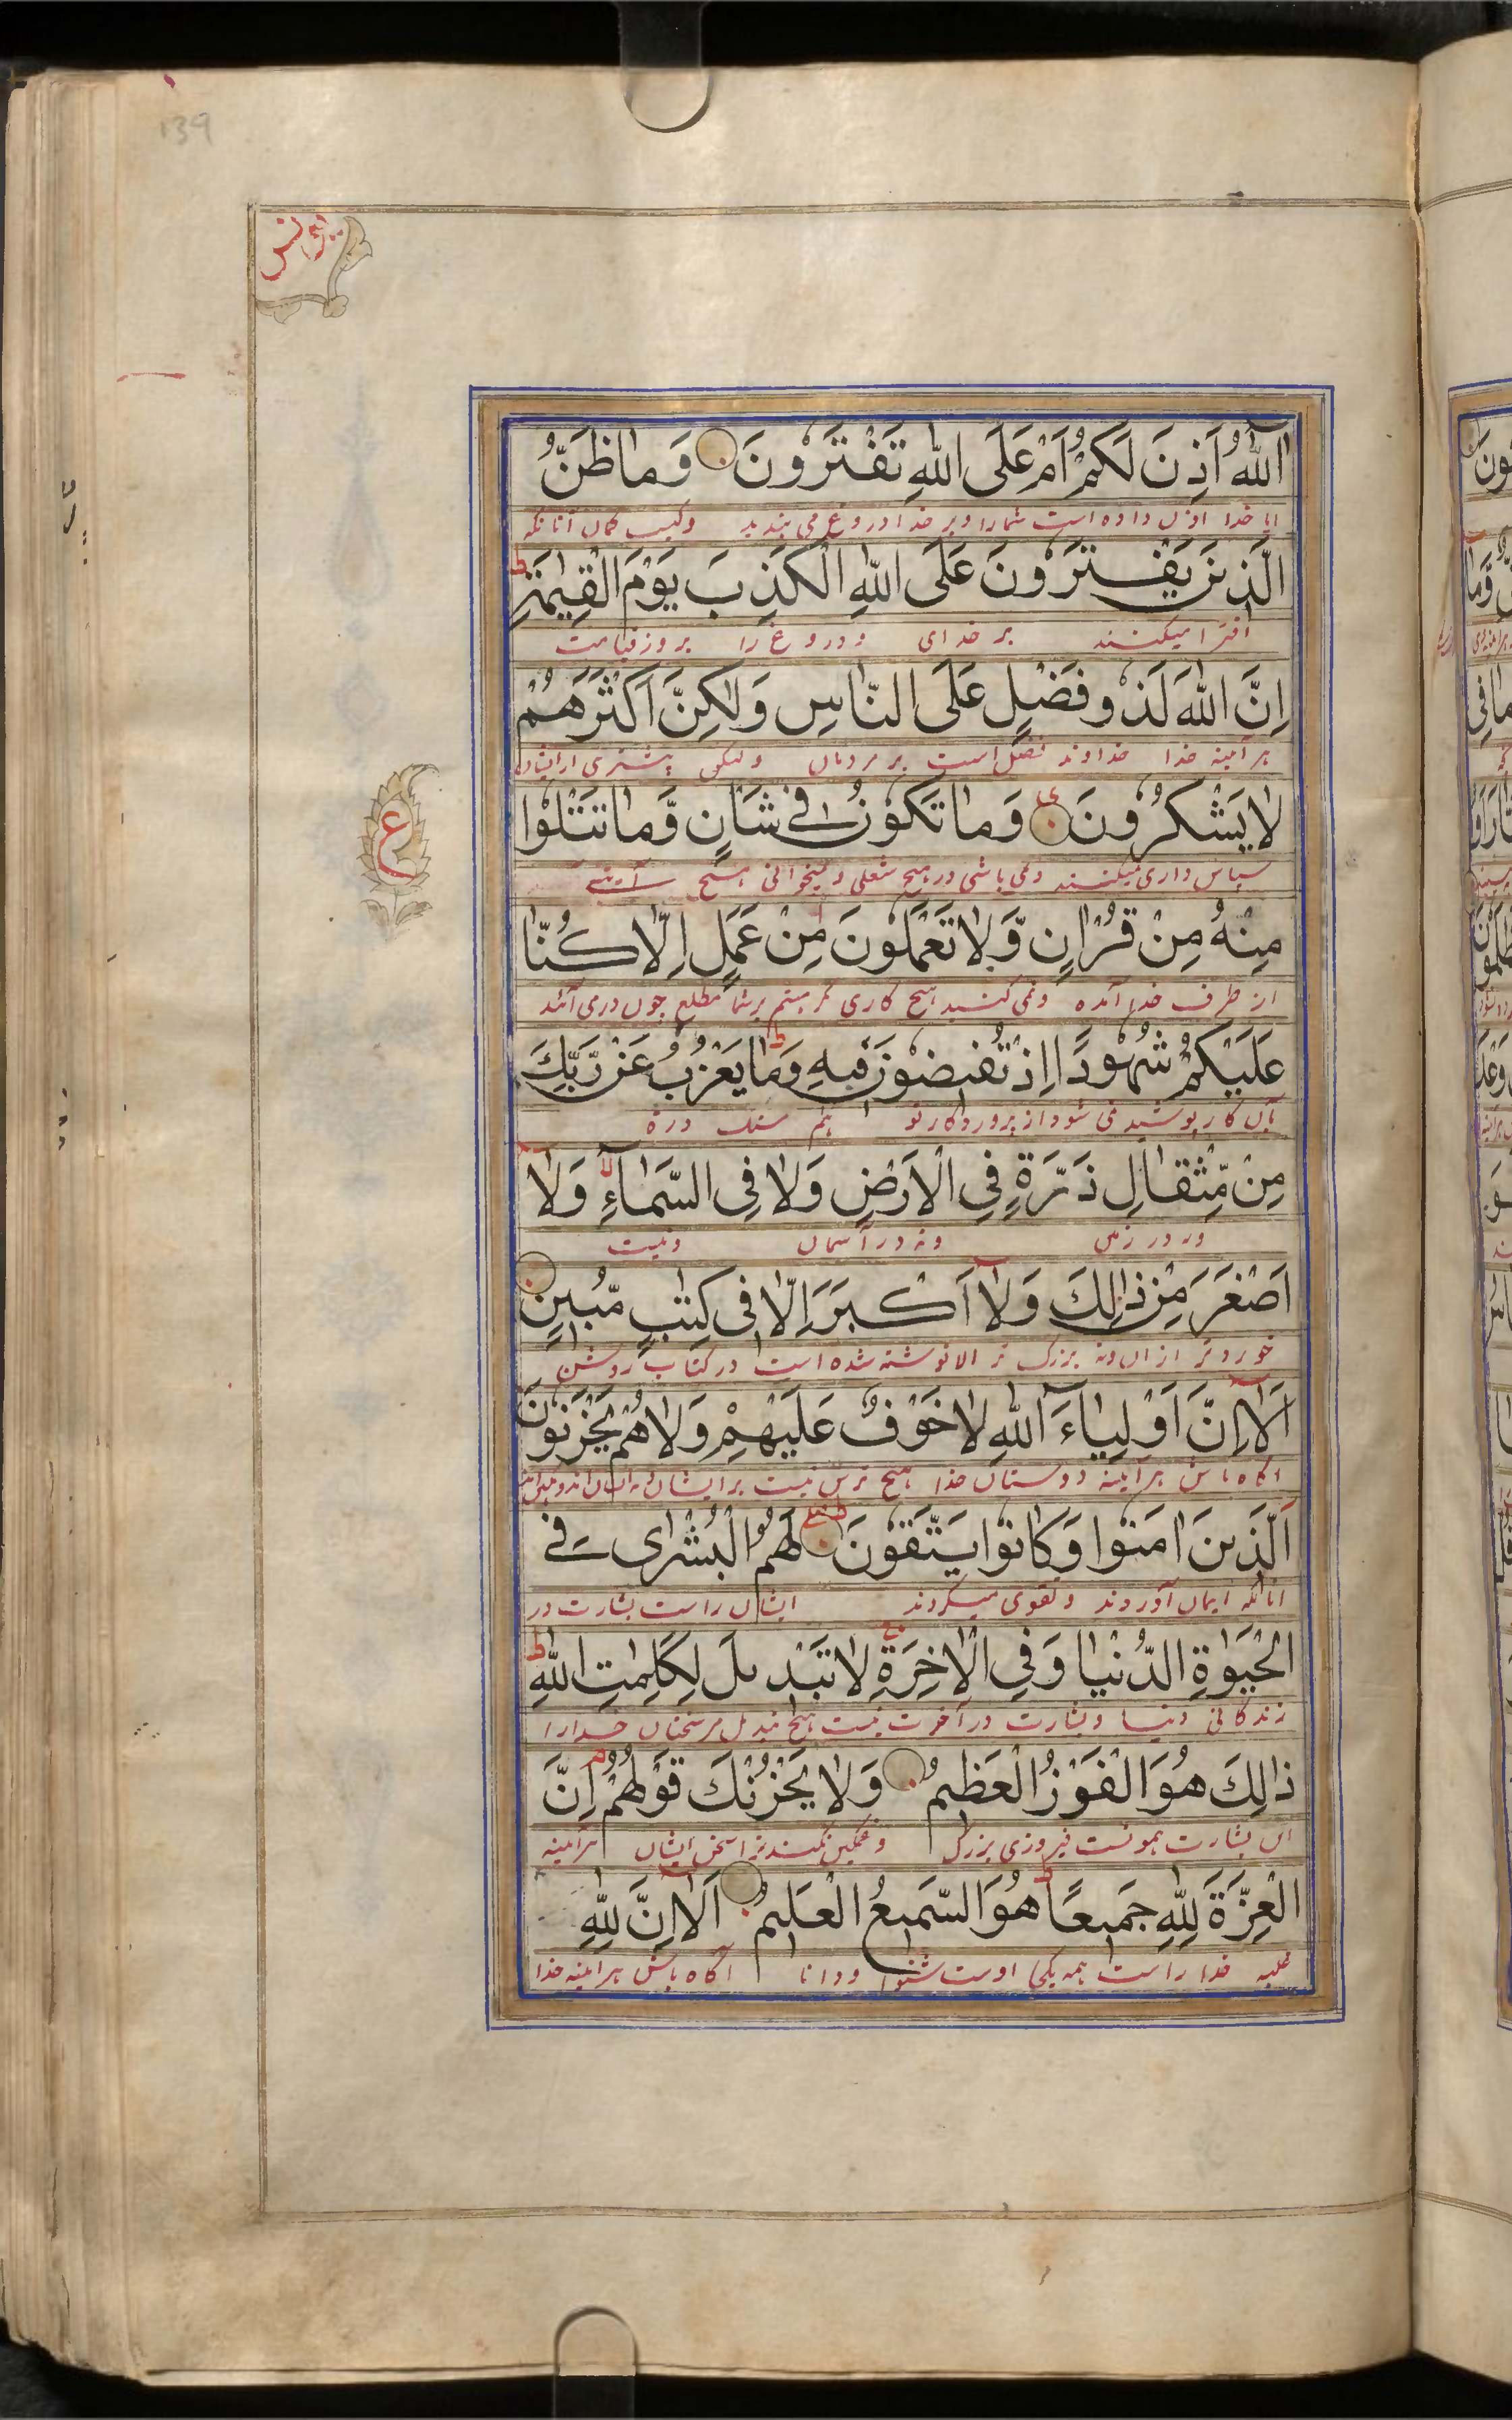 139
يونس
آللّٰهُ اَذِنَ لَكُمْ اَمْ عَلَى اللّٰهِ تَفْتَرُونَ وَمَا ظَنُّ
ایا خدا اذن داده است شما را و بر خدا دروغ می بندید وکیست گمان آنانکه
الَّذِينَ يَفْتَرُونَ عَلَى اللّٰهِ الْكَذِبَ يَوْمَ الْقِيٰمَةِ ط
افترا میکنند بر خدای و دروغ را بروز قیامت
اِنَّ اللّٰهَ لَذُو فَضْلٍ عَلَى النَّاسِ وَلٰكِنَّ اَكْثَرَهُمْ
هر آینه خدا خداوند فضل است بر مردمان ولیکن بیشتری از ایشان
لَا يَشْكُرُونَ وَمَا تَكُوْنُ فِي شَاْنٍ وَّمَا تَتْلُوْا
سپاس داری نمیکنند ونمی باشی در هیچ شغلی و نمیخوانی هیچ آیتی
ع
مِنْهُ مِنْ قُرْاٰنٍ وَّلَا تَعْمَلُونَ مِنْ عَمَلٍ اِلَّا كُنَّا
از طرف خدا آمده ونمی کنید هیچ کاری مگر هستم بر شما مطلع چون درمی آئید
عَلَيْكُمْ شُهُودًا اِذْ تُفِيضُوْنَ فِيهِ ط وَمَا يَعْزُبُ عَنْ رَّبِّكَ
بآن کار پوشیده نمی شود از پروردگار تو هم سنگ ذره
مِنْ مِّثْقَالِ ذَرَّةٍ فِي الْاَرْضِ وَلَا فِي السَّمَاۤءِ وَلَا
ونه در آسمان ونیست
اَصْغَرَ مِنْ ذٰلِكَ وَلَاۤ اَكْبَرَ اِلَّا فِي كِتٰبٍ مُّبِينٍ
خوردتر ازان ونه بزرگ تر الا نوشته شده است در کتاب روشن
اَلَاۤ اِنَّ اَوْلِيَاۤءَ اللّٰهِ لَا خَوْفٌ عَلَيْهِمْ وَلَا هُمْ يَحْزَنُونَ
اگاه باش هر آینه دوستان خدا هیچ ترس نیست بر ایشان
اَلَّذِينَ اٰمَنُوا وَكَانُوا يَتَّقُونَ لَهُمُ الْبُشْرٰى فِي
انانکه ایمان آوردند وتقوی میکردند ایشان راست بشارت در
الْحَيٰوةِ الدُّنْيَا وَفِي الْاٰخِرَةِ لَا تَبْدِيلَ لِكَلِمٰتِ اللّٰهِ ط
زندگانی دنیا وبشارت در آخرت نیست هیچ تبدیل مر سخنان خدا را
ذٰلِكَ هُوَ الْفَوْزُ الْعَظِيمُ وَلَا يَحْزُنْكَ قَوْلُهُمْ م اِنَّ
این بشارت همونست فیروزی بزرگ وغمگین نکند ترا سخن ایشان هرآینه
الْعِزَّةَ لِلّٰهِ جَمِيعًا ط هُوَ السَّمِيعُ الْعَلِيمُ اَلَاۤ اِنَّ لِلّٰهِ
غلبه خدا راست همه یکجا اوست شنوا ودانا آگاه باش هرآینه خدا